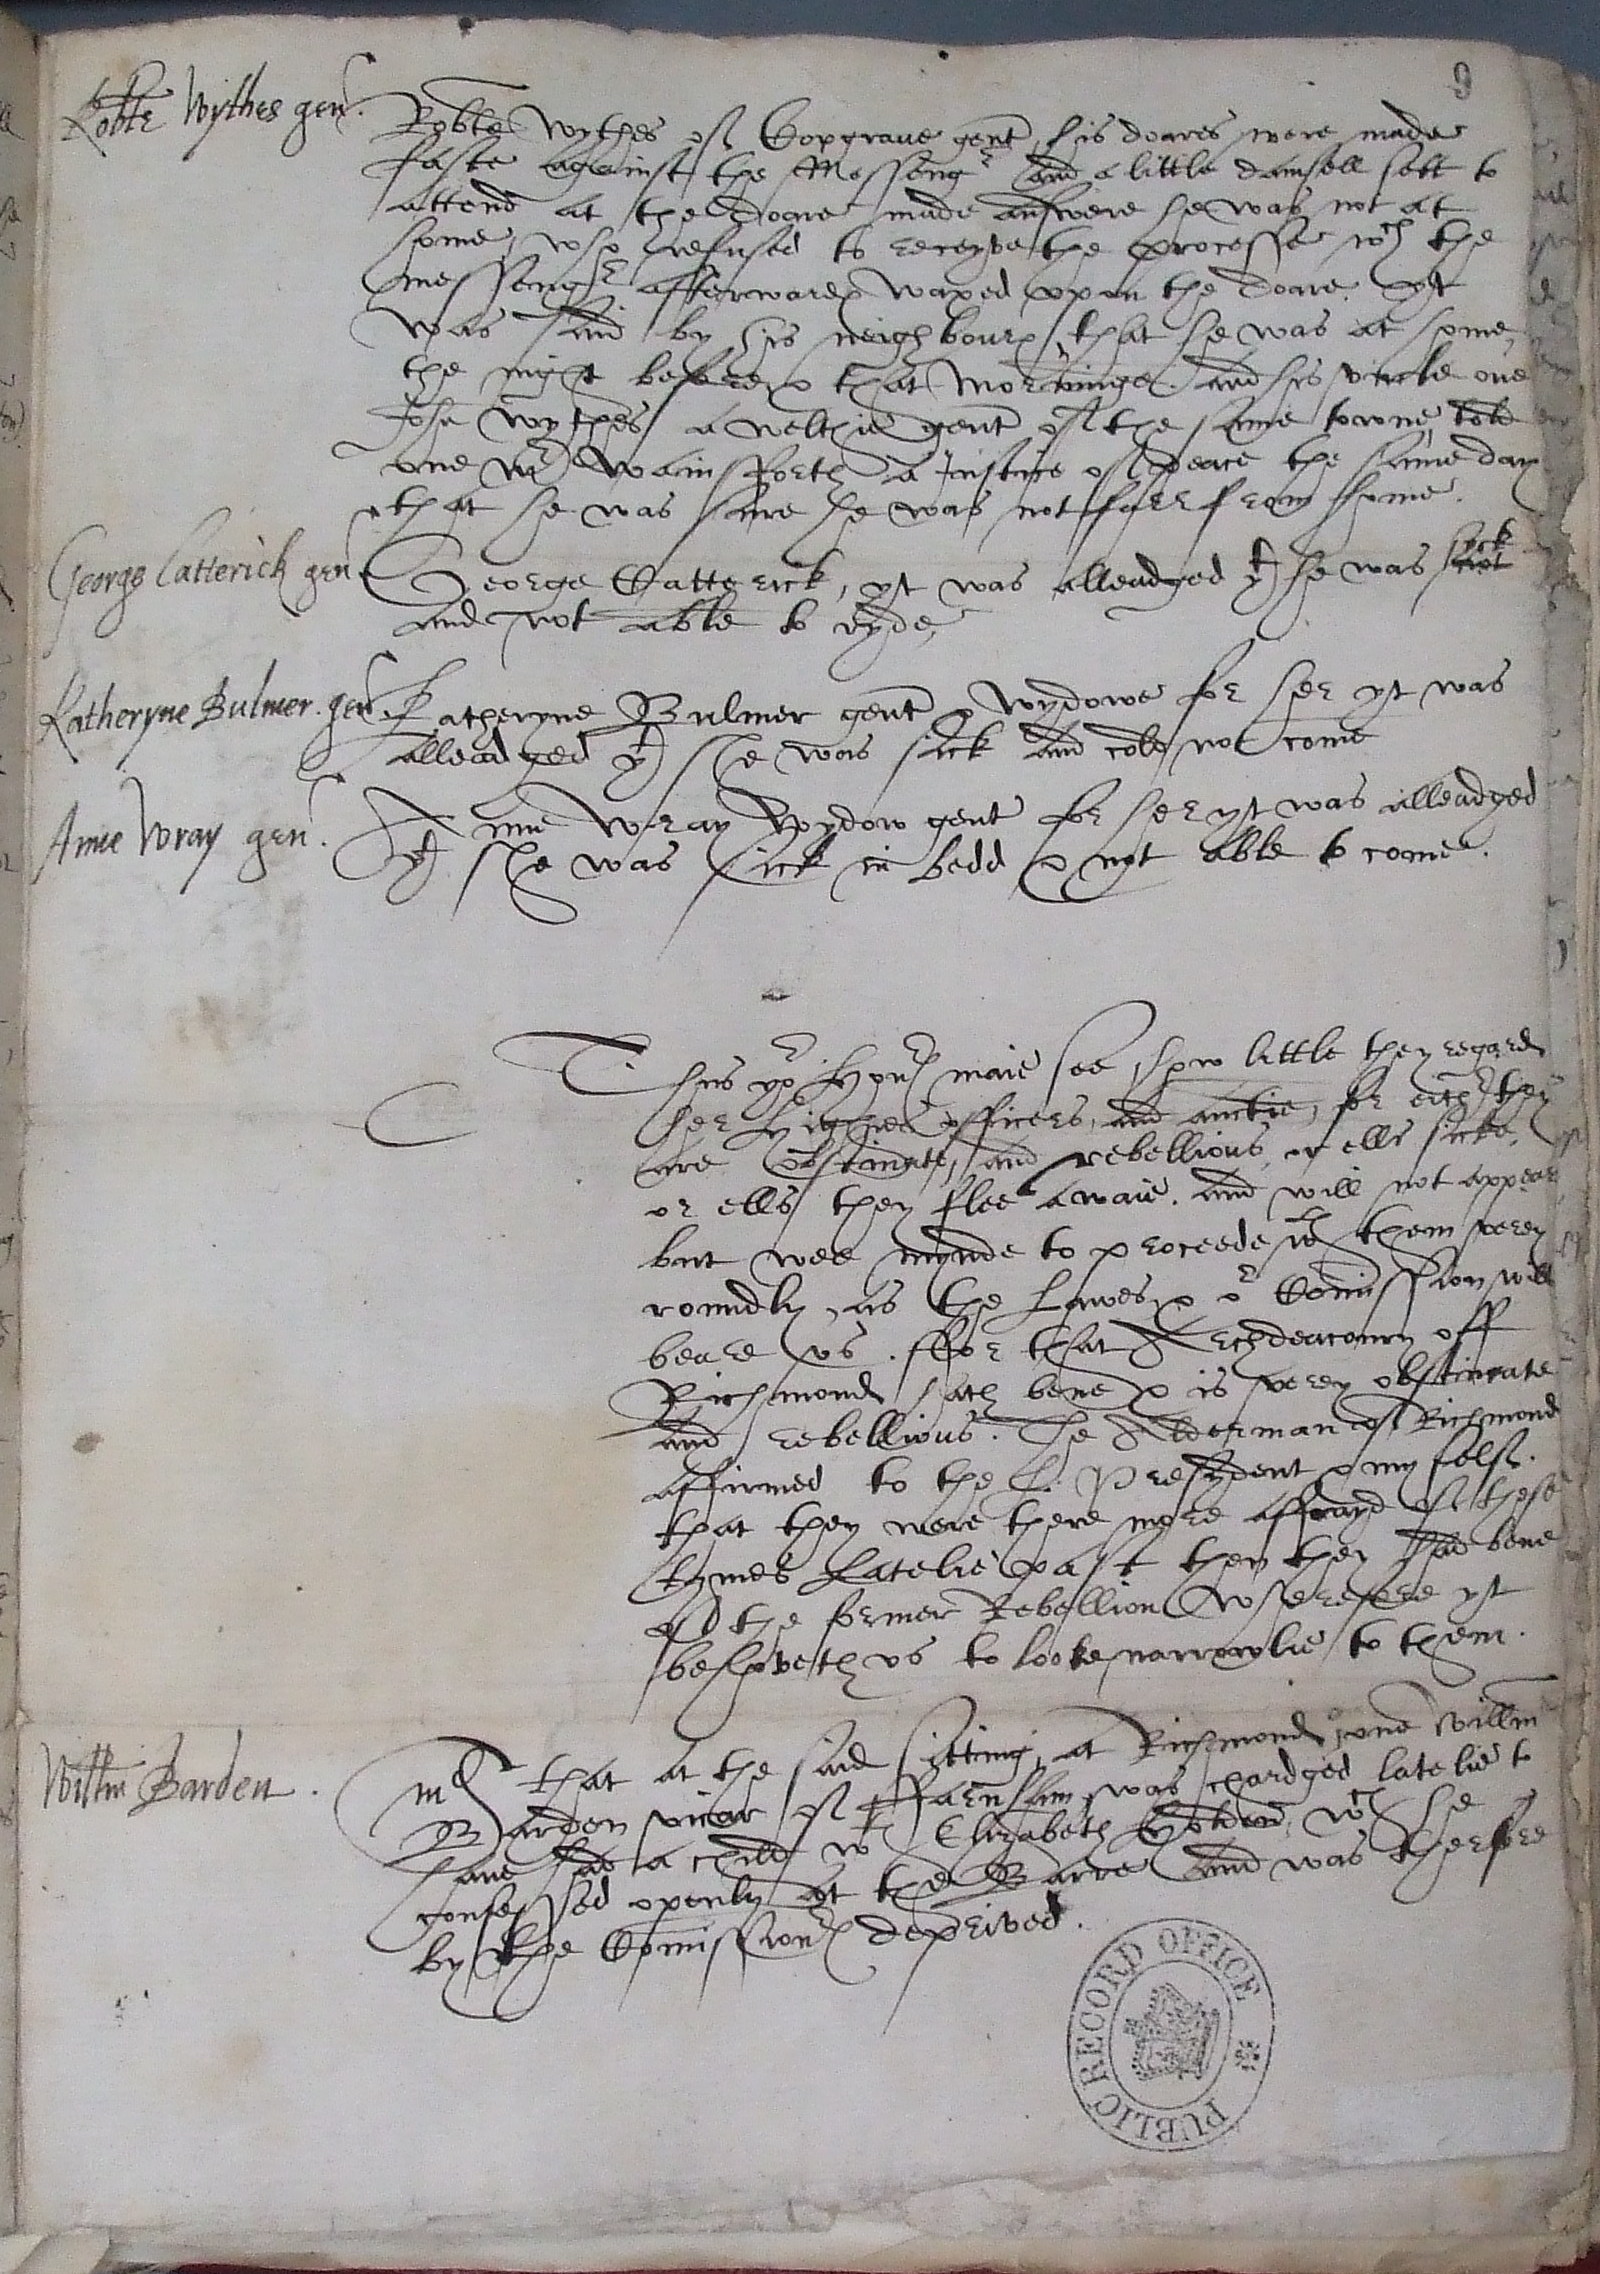 9
Robte Wythes gen.
Robte Wythes of Copgraue gent his doares were made
faste against the Messengr and a little damsell sett to
attend at the doare made answere he was not at
home, who refused to receyve the processe wch the
messengr afterwardes waxed vpon the doare. yt
was said by his neighbours, that he was at home
the night before & that morninge. and his vncle one
John Wythes a welthie gent of the same towne told
one Mr Wainsforth a Justice of peace the same day
that he was sure he was not farr from home.
George Catterick gen
George Catterick, yt was alleadged yt he was sick
and not able to ryde,
Katheryne Bulmer. gen.
Katheryne Bulmer gent & wydowe for her yt was
alleadged yt she was sick and cold not come
Anne Wray gen.
Anne Wray wydow gent for her yt was alleadged
yt she was sick in bedd & not able to come.
Thus yor Honrs maie see, how little they regard
her highnes officers, and auctie, for eithr they
are obstinate, and rebellious, or ells sicke,
or ells they flee awaie. and will not appear
but wee mynde to proceede wth them verey
roundly, as the Lawes & or Comission will
beare vs. ffor that Archdeaconry off
Richmond hath bene & is verey obstinate
and rebellious. The Alderman of Richmond
affirmed to the L. President & my self.
that they were there more affrayd of these
tymes Latelie past then they had bene
of the former Rebellion Wherefore yt
behoveth vs to looke narrowlie to them.
Willm Barden.
Md that at the said sitting at Richmond, one Willm
Barden vicar of ffarnham was chardged latelie to
haue had a child wth Elizabeth Holden, wch he
confessed openly at the Barre and was therfore
by the Comissionrs deprived.
PUBLIC RECORD OFFICE